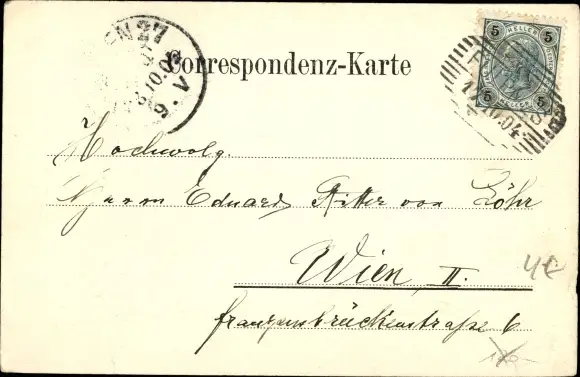 WIEN 2/1
10.04
9.V
Correspondenz-Karte
5 HELLER 5
5 5
17.10.04
Hochwolg.
Herrn Eduard Ritter von Löhr
Wien, II.
Franzensbrückenstraße 6
4€